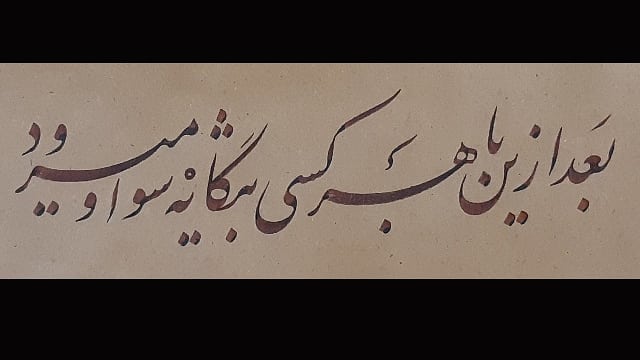 بعد ازین با هر کسی بیگانه سو او میرود